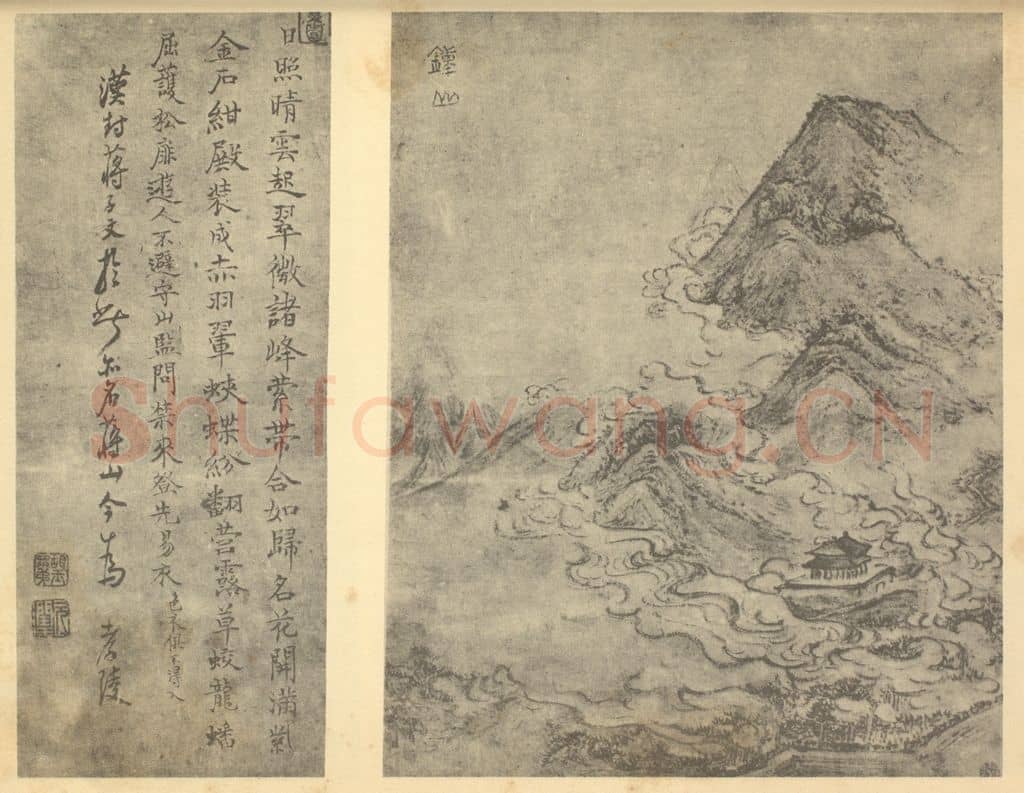 鍾山
日照晴雲起翠微諸峰縈帶合如歸名花開滿紫
金石紺殿裝成赤羽翬蛺蝶紛翻苔露草蛟龍蟠
屈護松扉遊人不避守山監問禁來登先易衣
色衣俱不得入
漢封蔣子文於此亦名蔣山今為 孝陵
Shufawang.CN